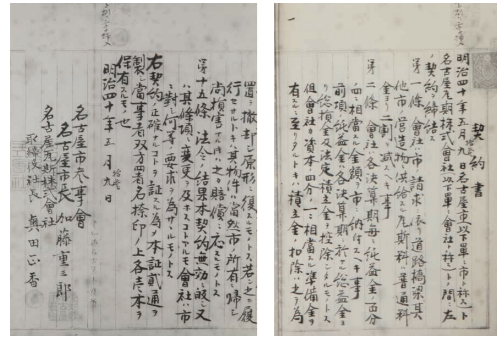 契約書
明治四十年五月九日名古屋市(以下單ニ市ト称ス)ト
名古屋瓦斯株式會社(以下單ニ會社ト称ス)トノ間ニ左
ノ契約ヲ締結ス
第一條 會社ハ市ノ請求ニ依リ道路橋梁其
他市ノ營造物ニ供給スル瓦斯料ハ普通料
金ヨリ二割ヲ減スヘキ事
第二條 會社ハ各決算期毎ニ純益金ノ百分ノ
四ニ相當スル金額ヲ市ニ納付スヘキ事
前項ノ純益金ハ各決算期ニ於ケル總益金ヨ
リ總損金及法定積立金ヲ控除シタルモノトス
但會社ノ資本四分ノ一ニ相當スル準備金ヲ
有スルニ至リタルトキハ積立金ノ控除ハ之ヲ為
置ヲ撤却シ原形ニ復スルモノトス若シ之ヲ履
行セサルトキハ其物件ハ當然市ノ所有ニ歸シ
尚損害アルトキハ賠償スルモノトス
第十五條 法令ノ結果本契約ノ無効ニ歸シ又
ハ其條項ニ變更ヲ及ホスコトアルモ會社ハ市
ニ對シ何等ノ要求ヲ為サヽルモノトス
右契約ノ正確ナルコトヲ証スル為メ本証貳通ヲ
製シ當事者双方署名捺印ノ上各壱通ヲ
保有スルモノ也
明治四十年五月九日
名古屋市参事會
名古屋市長 加藤重三郎
名古屋瓦斯株式會社
取締役社長 奥田正香